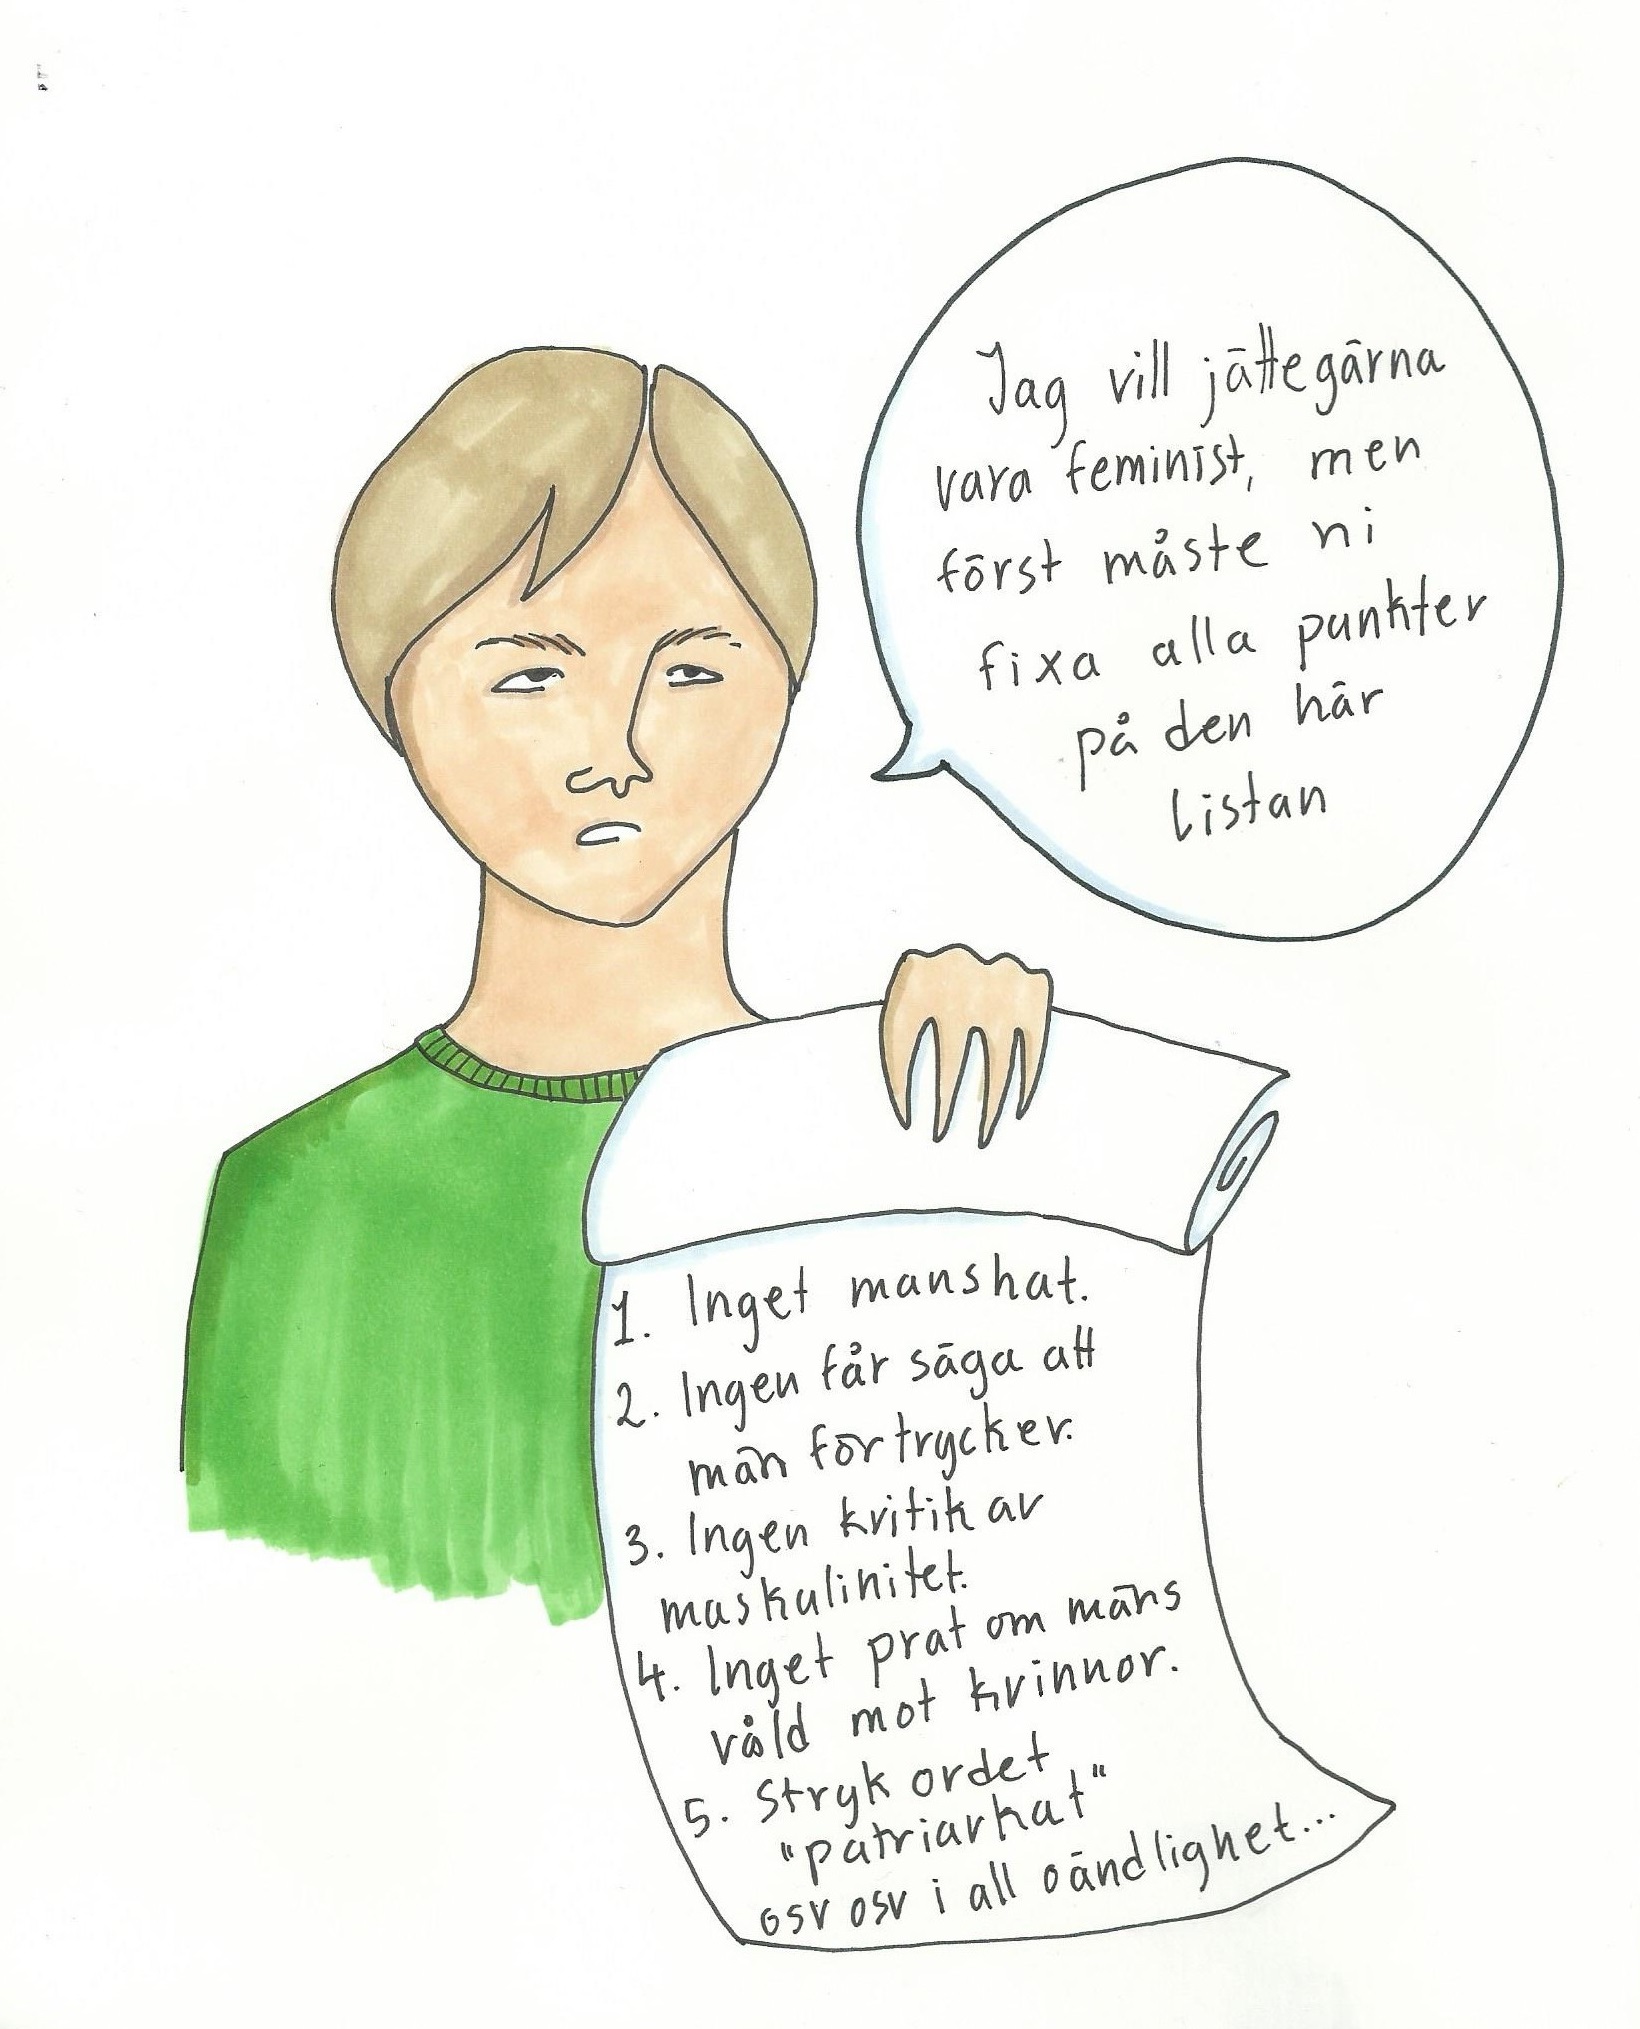 Jag vill jättegärna
vara feminist, men
först måste ni
fixa alla punkter
på den här
listan
1. Inget manshat.
2. Ingen får säga att
män förtrycker.
3. Ingen kritik av
maskulinitet.
4. Inget prat om mäns
våld mot kvinnor.
5. Stryk ordet
"patriarkat"
osv osv i all oändlighet...